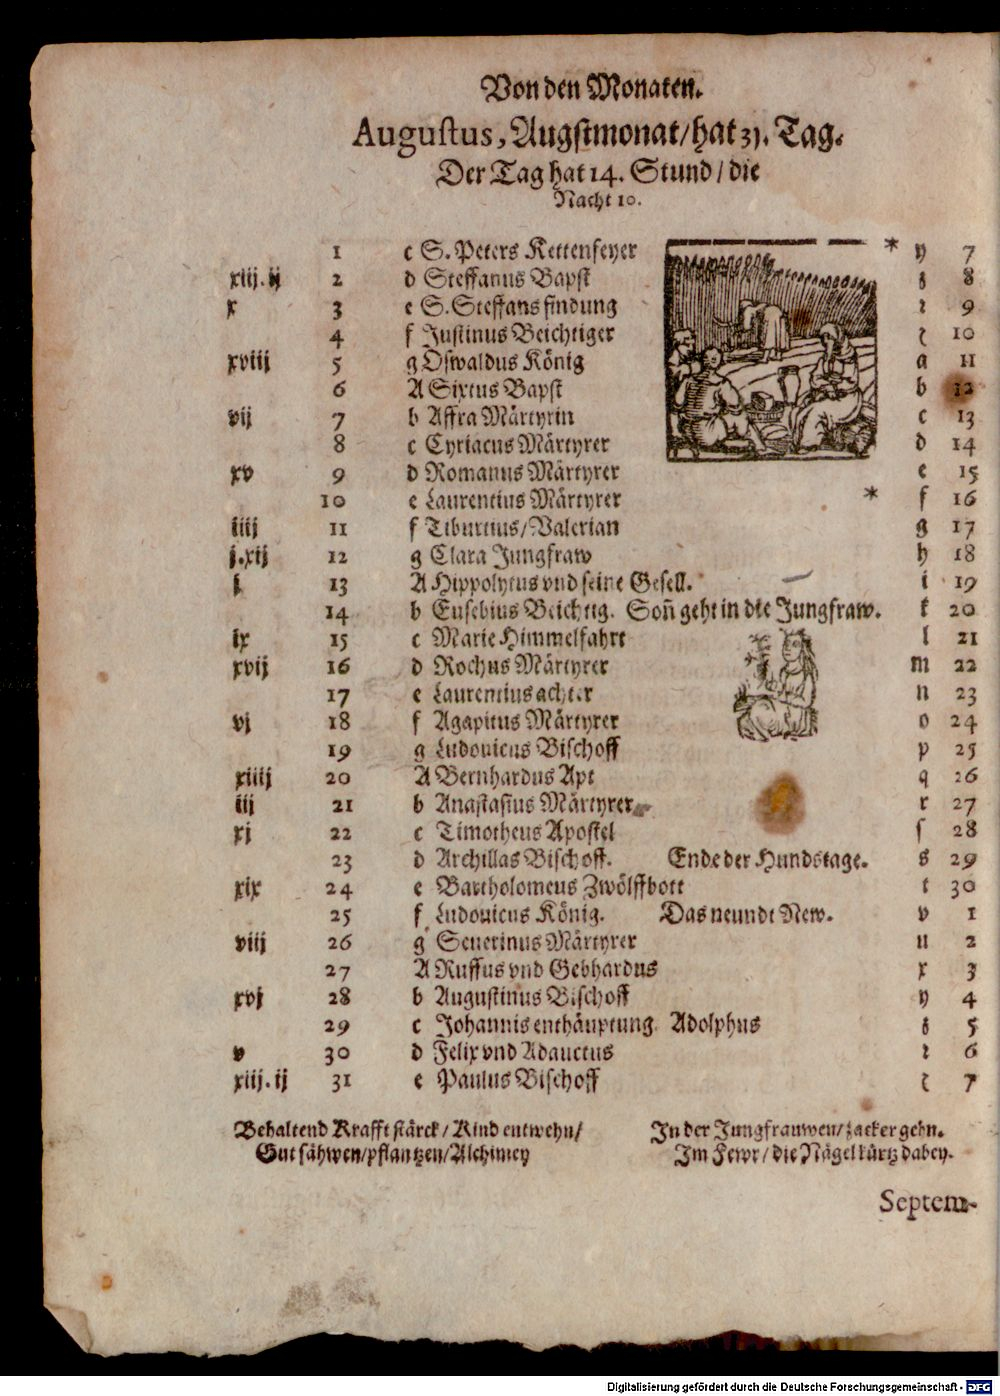 Von den Monaten.
Augustus, Augstmonat/hat 31. Tag.
Der Tag hat 14. Stund/die
Nacht 10.
1 c S. Peters Kettenfeyer * y 7
xiij.ij 2 d Steffanus Bapst z 8
x 3 e S. Steffans findung 9
4 f Justinus Beichtiger 10
xviij 5 g Oswaldus König a 11
6 A Sixtus Bapst b 12
vij 7 b Affra Märtyrin c 13
8 c Cyriacus Märtyrer d 14
xv 9 d Romanus Märtyrer e 15
10 e Laurentius Märtyrer * f 16
iiij 11 f Tiburtius/Valerian g 17
j.xij 12 g Clara Jungfraw h 18
j 13 A Hippolytus vnd seine Gesell. i 19
14 b Eusebius Beichtig. Soñ geht in die Jungfraw. k 20
ix 15 c Marie Himmelfahrt l 21
xvij 16 d Rochus Märtyrer m 22
17 e Laurentius achter n 23
vj 18 f Agapitus Märtyrer o 24
19 g Ludouicus Bischoff p 25
xiiij 20 A Bernhardus Apt q 26
iij 21 b Anastasius Märtyrer r 27
xj 22 c Timotheus Apostel ſ 28
23 d Archillas Bischoff. Ende der Hundstage. s 29
xix 24 e Bartholomeus Zwölffbott t 30
25 f Ludouicus König. Das neundt New. v 1
viij 26 g Seuerinus Märtyrer u 2
27 A Ruffus vnd Gebhardus x 3
xvj 28 b Augustinus Bischoff y 4
29 c Johannis enthäuptung Adolphus z 5
v 30 d Felix vnd Adauctus 6
xiij.ij 31 e Paulus Bischoff 7
Behaltend Krafft stärck/Kind entwehn/
Gut sähwen/pflantzen/Alchimey
In der Jungfrauwen/zacker gehn.
Im Fewr/die Nägel kürtz dabey.
Septem-
Digitalisierung gefördert durch die Deutsche Forschungsgemeinschaft - DFG